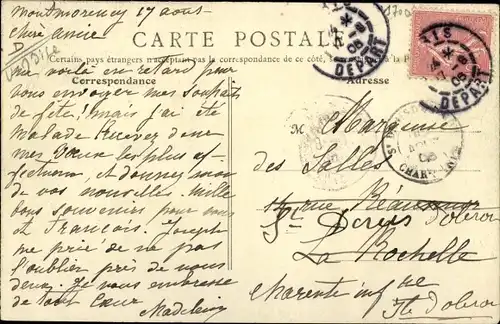 Montmorency 17 aout
Chère amie
CARTE POSTALE
Certains pays étrangers n'acceptent pas la correspondance de ce côté
Correspondance
Adresse
Me voilà en retard pour
vous envoyer mes souhaits
de fête! mais j'ai été
malade recevez donc
mes vœux les plus af-
fectueux, et donnez moi
de vos nouvelles. Mille
bons souvenirs pour vous
et François. Joseph
me prie de ne pas
l'oublier près de vous
deux. Je vous embrasse
de tout cœur
M
des Salles
rue Réaumur
St Denis d'Oleron
La Rochelle
Charente infre
Ile d'Oleron
DEPART
DEPART